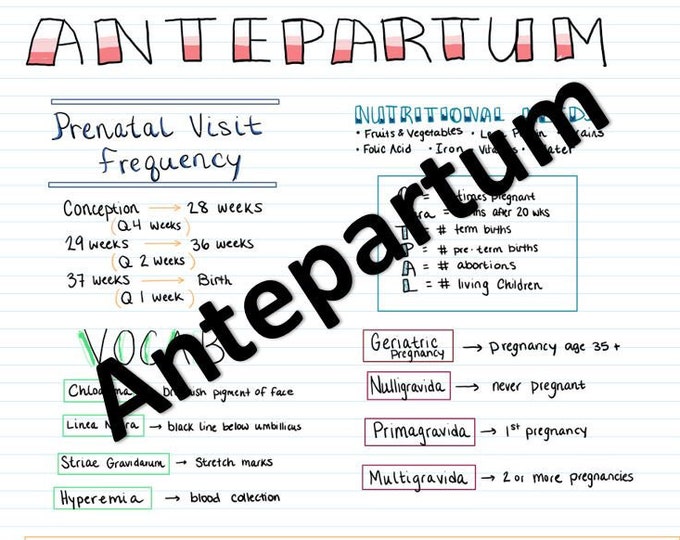 ANTEPARTUM
Prenatal Visit
frequency
Conception → 28 weeks
(Q 4 weeks)
29 weeks → 36 weeks
(Q 2 weeks)
37 weeks → Birth
(Q 1 week)
NUTRITIONAL
• Fruits & Vegetables •
• Folic Acid • Iron •
= times pregnant
= after 20 wks
T = # term births
P = # pre-term births
A = # abortions
L = # living Children
Antepartum
VOCAB
→ pigment of face
Linea → black line below umbilicus
Striae Gravidarum → Stretch marks
Hyperemia → blood collection
Geriatric
Pregnancy → pregnancy age 35+
Nulligravida → never pregnant
Primagravida → 1st pregnancy
Multigravida → 2 or more pregnancies